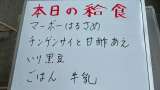 本日の給食
マーボーはるさめ
チンゲンサイと甘酢あえ
いり黒豆
ごはん 牛乳